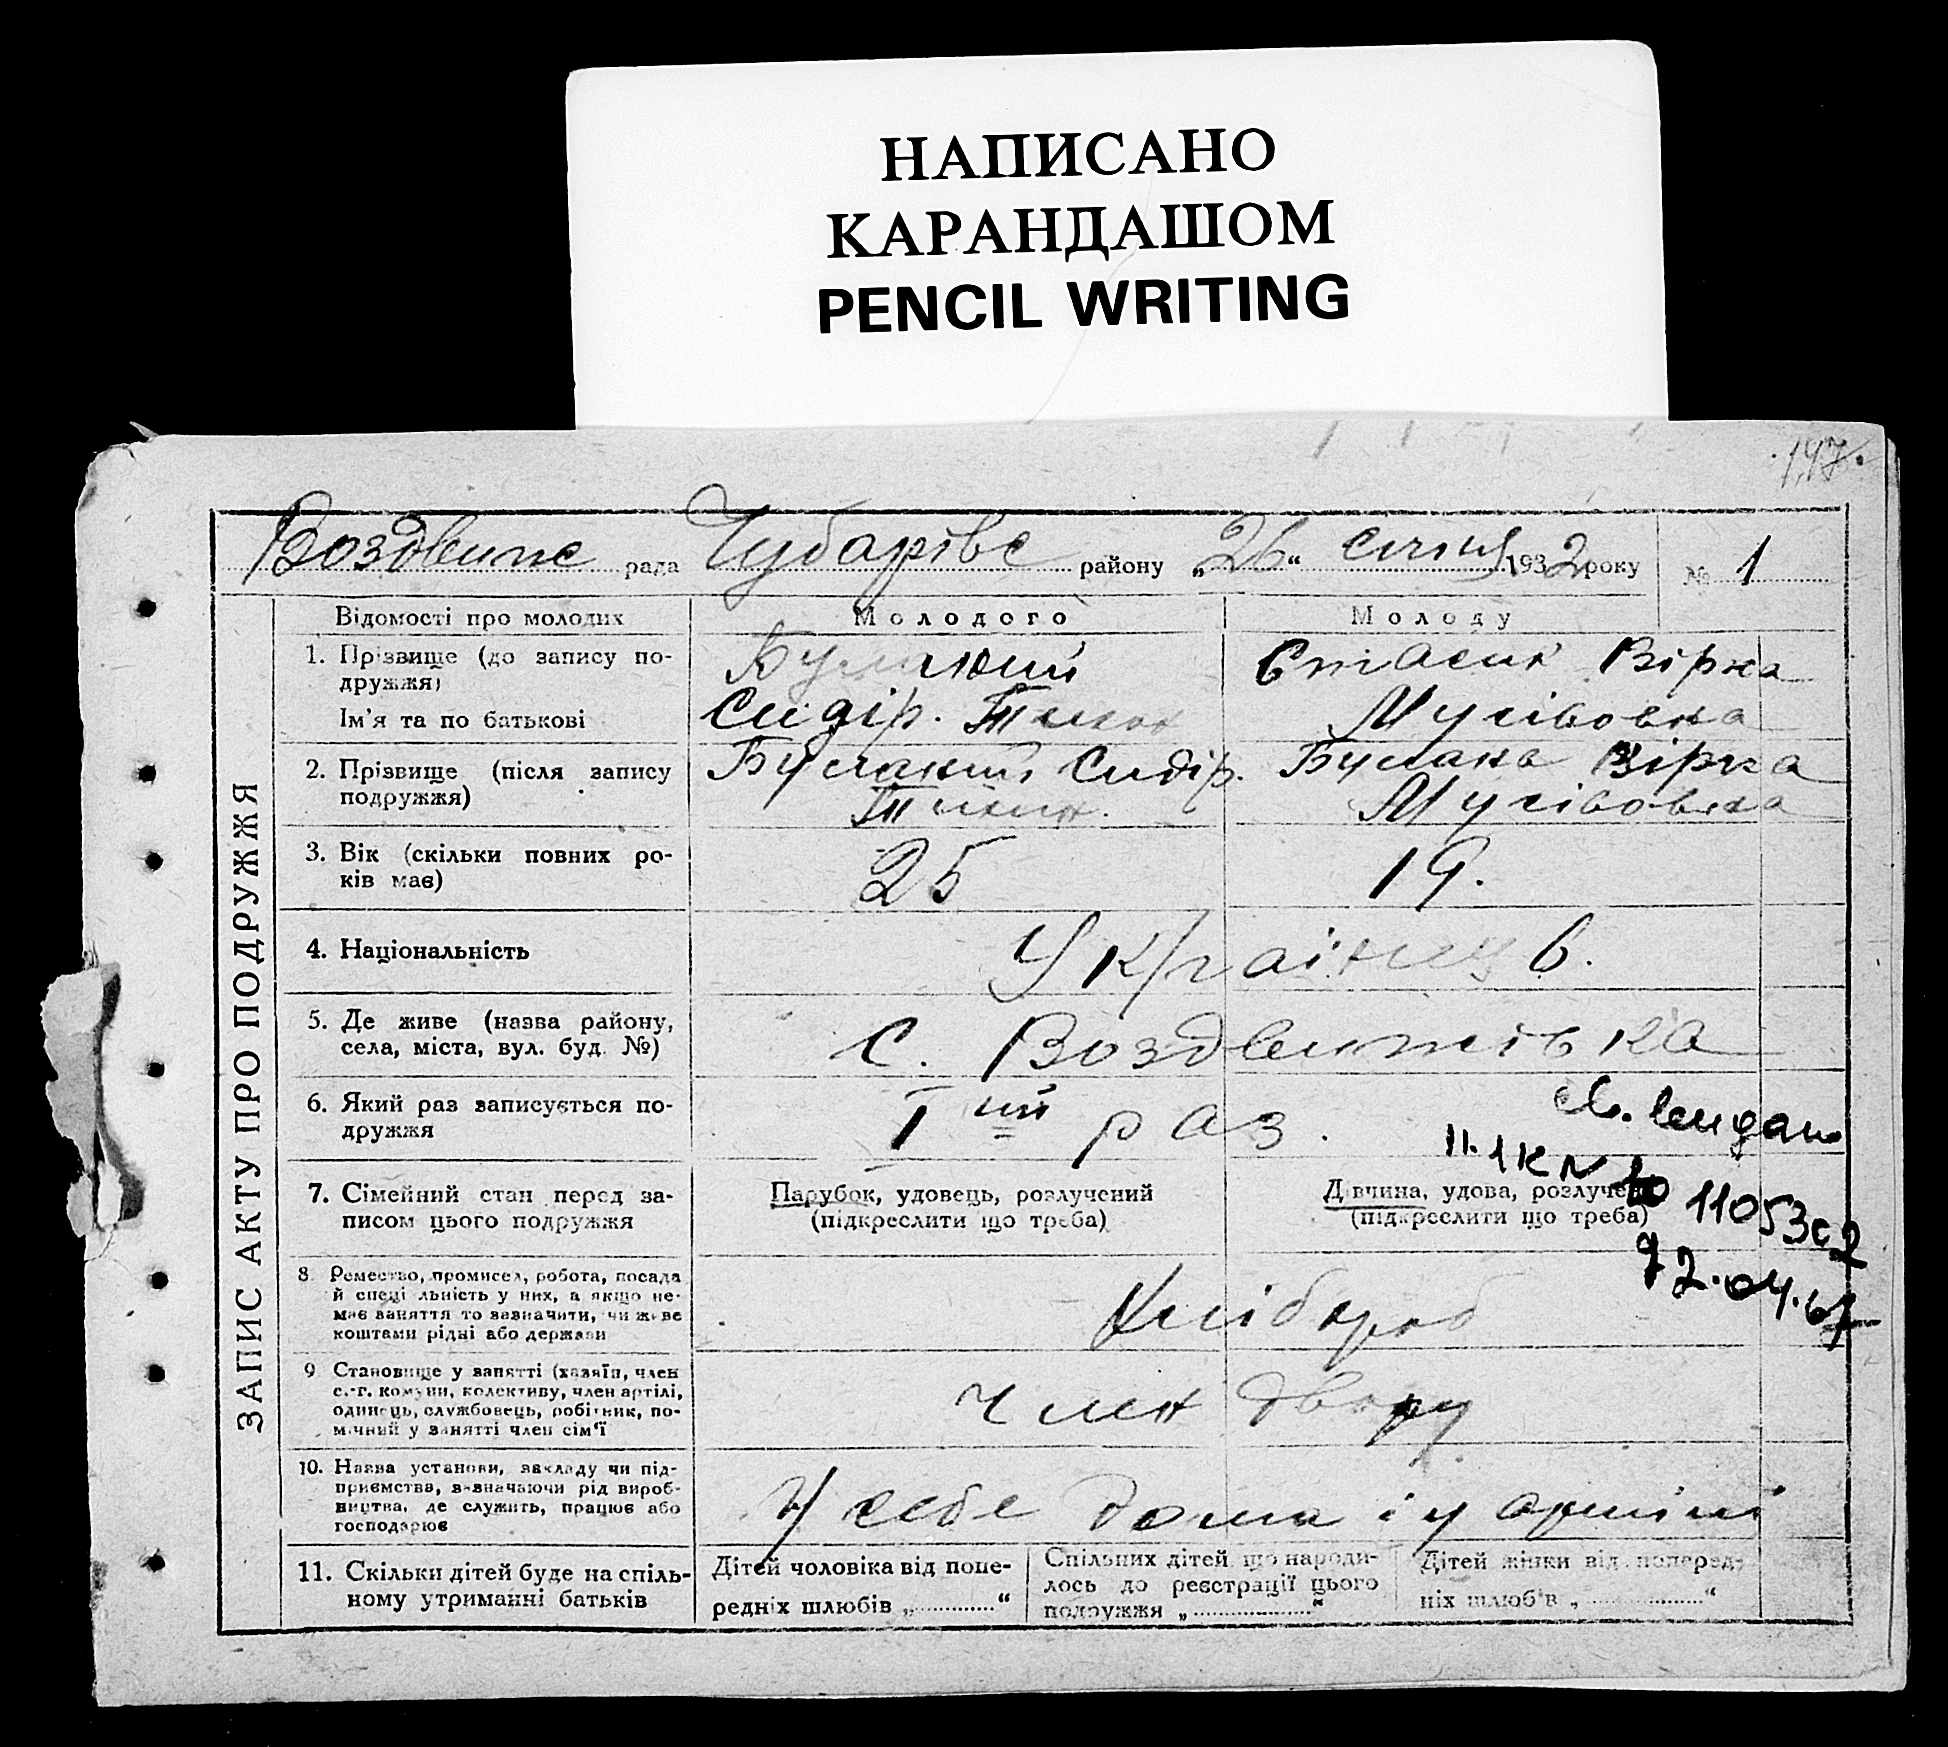 НАПИСАНО
КАРАНДАШОМ
PENCIL WRITING
147.
Воздвиж рада Чубарівс району „26“ січня 1932 року № 1
ЗАПИС АКТУ ПРО ПОДРУЖЖЯ
Відомості про молодих
Молодого
Молоду
1. Прізвище (до запису по-
дружжя)
Ім'я та по батькові
Сидір.
Стасик Вірка
Мусівовна
2. Прізвище (після запису
подружжя)
Сидір.
Вірка
Мусівовна
3. Вік (скільки повних ро-
ків має)
25
19.
4. Національність
Українців.
5. Де живе (назва району,
села, міста, вул. буд. №)
с. Воздвижівка
6. Який раз записується по-
дружжя
І ий раз.
11053с2
7. Сімейний стан перед за-
писом цього подружжя
Парубок, удовець, розлучений
(підкреслити що треба)
Дівчина, удова, розлучена
(підкреслити що треба)
8. Ремество, промисел, робота, посада
й спеціальність у них, а якщо не-
має заняття то зазначити, чи живе
коштами рідні або держави
Хлібороб
9 Становище у занятті (хазяїн, член
с.-г. комуни, колективу, член артілі,
одинець, службовець, робітник, по-
мічний у занятті член сім'ї
член двору
10. Назва установи, закладу чи під-
приємства, зазначаючи рід вироб-
ництва, де служить, працює або
господарює
У себе дома і у артілі
11. Скільки дітей буде на спіль-
ному утриманні батьків
Дітей чоловіка від попе-
редніх шлюбів „ “
Спільних дітей, що народи-
лось до реєстрації цього
подружжя „ “
Дітей жінки від поперед-
ніх шлюбів „ “